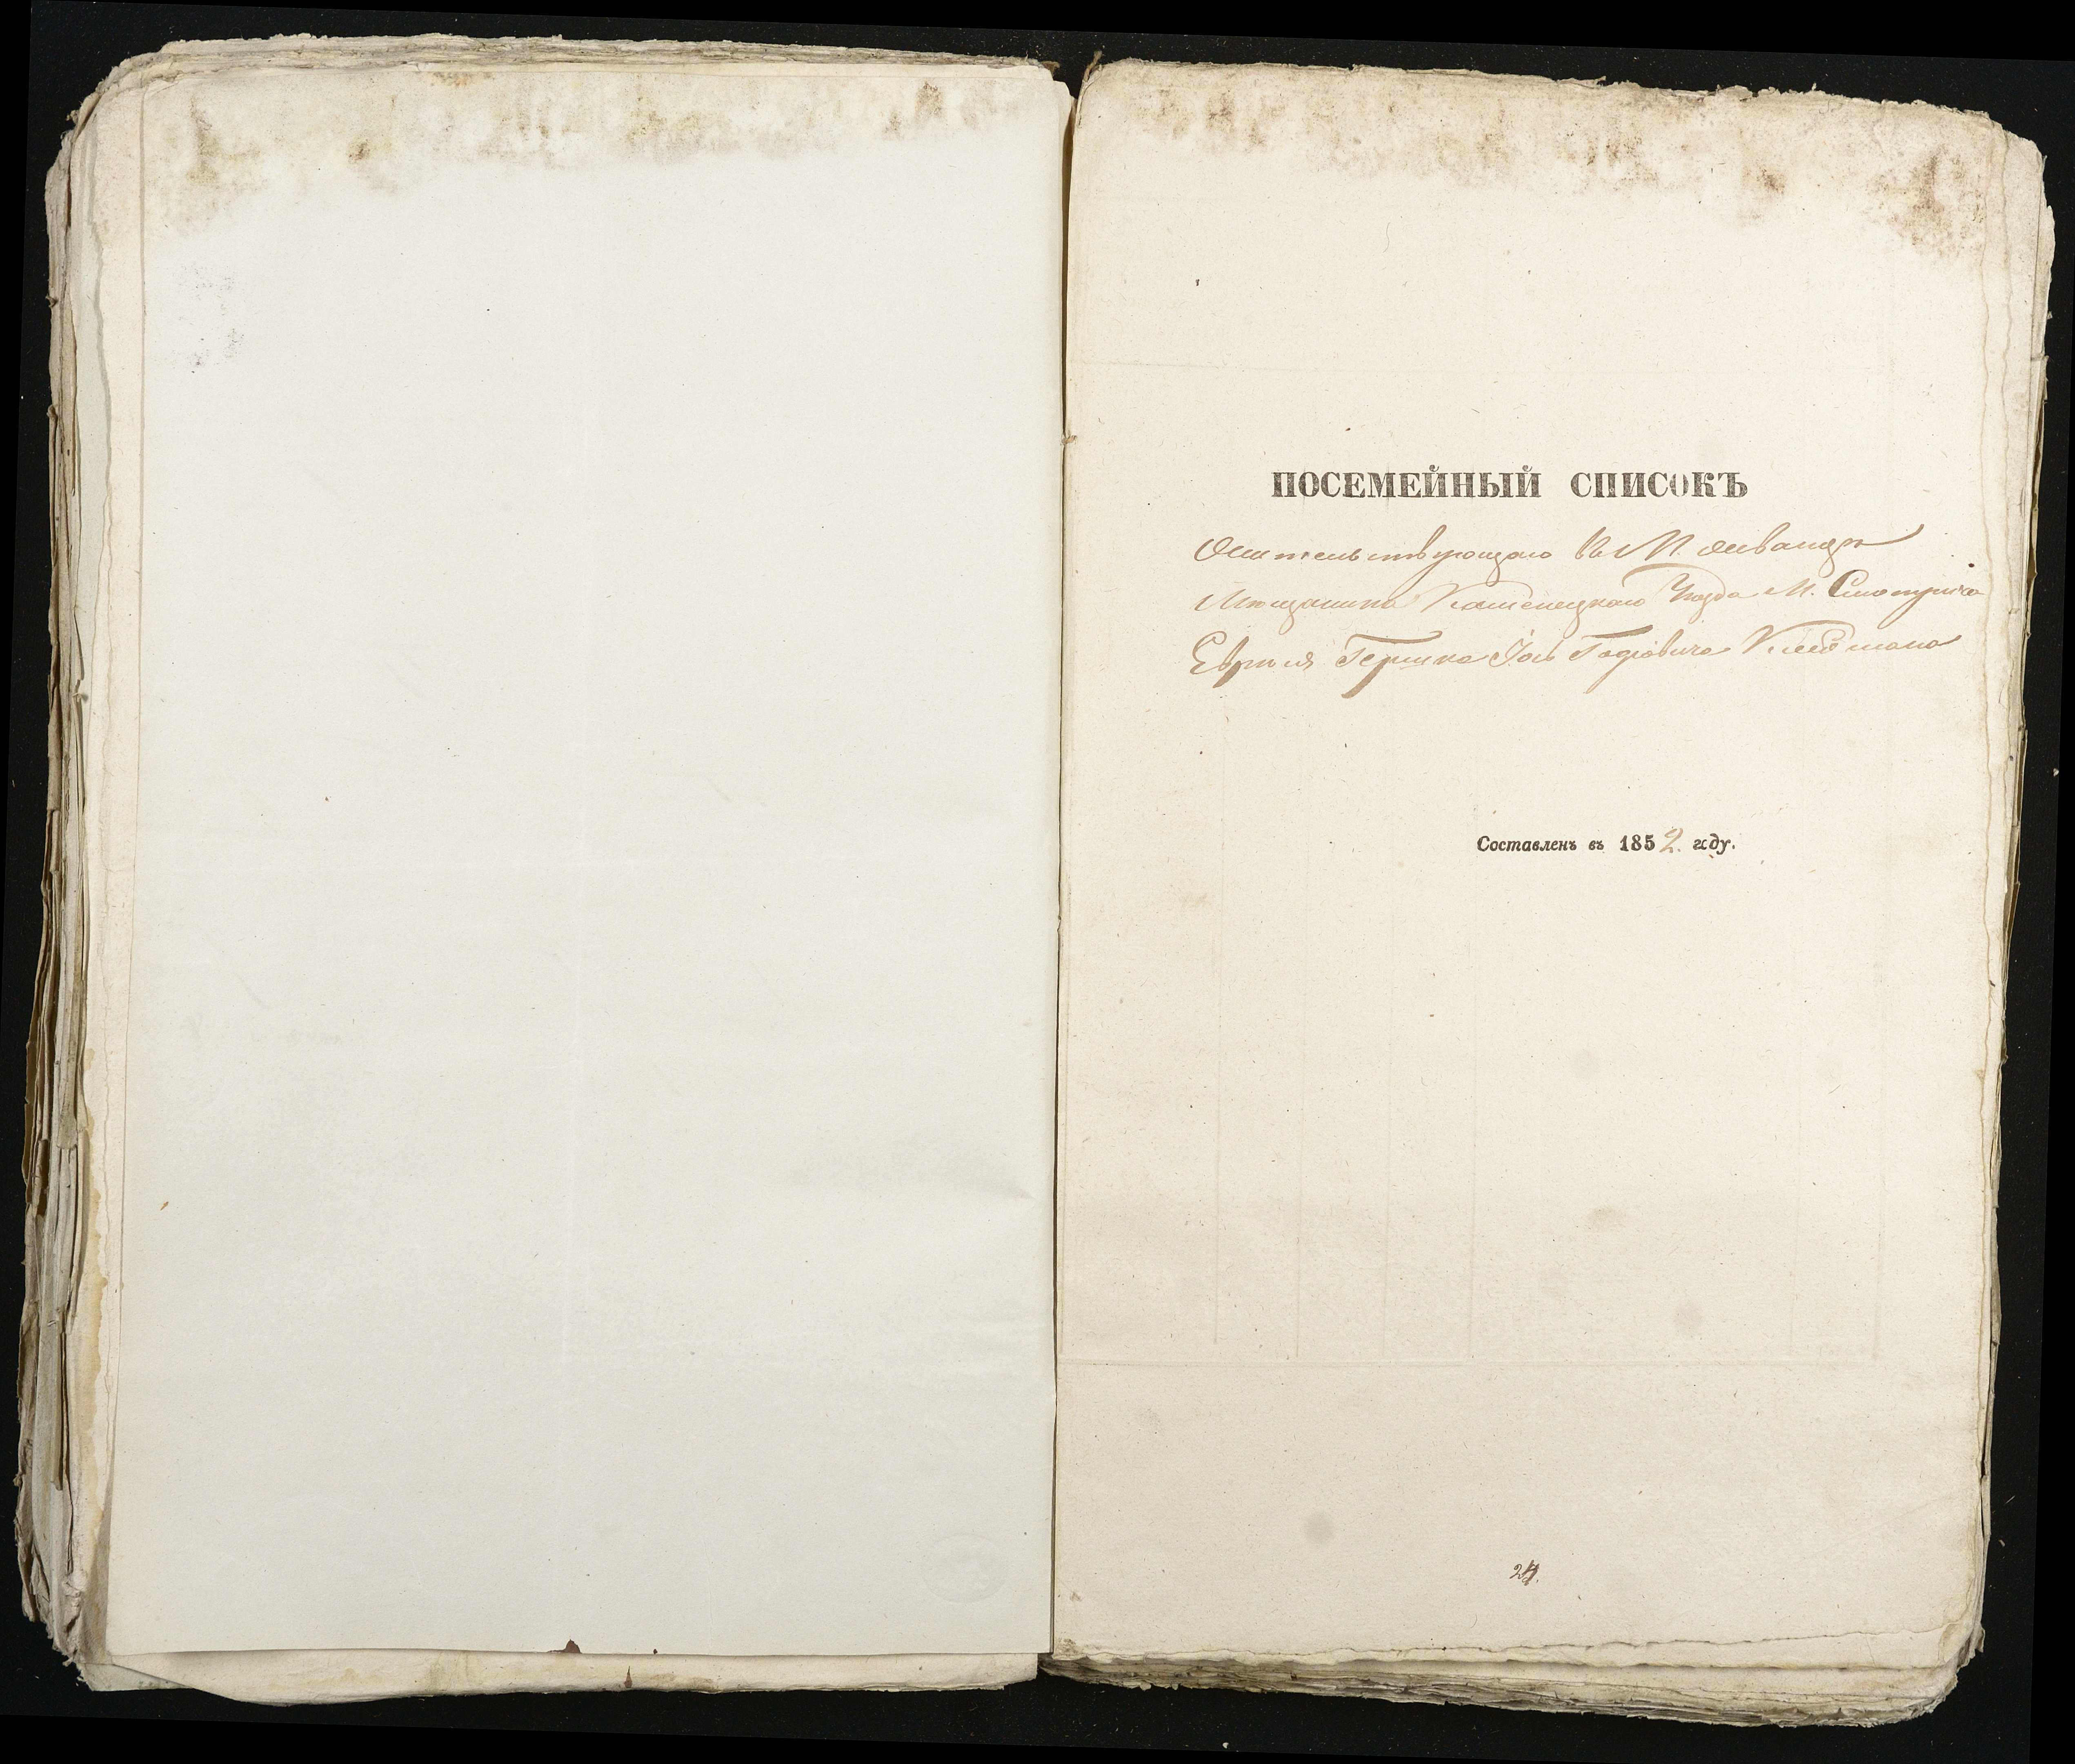 ПОСЕМЕЙНЫЙ СПИСОКЪ
Жительствующаго въ М. Жванцѣ
Мѣщанина Каменецкаго Уѣзда М. Смотрича
Еврея Гершка Іось
Составленъ въ 1852. году.
24.